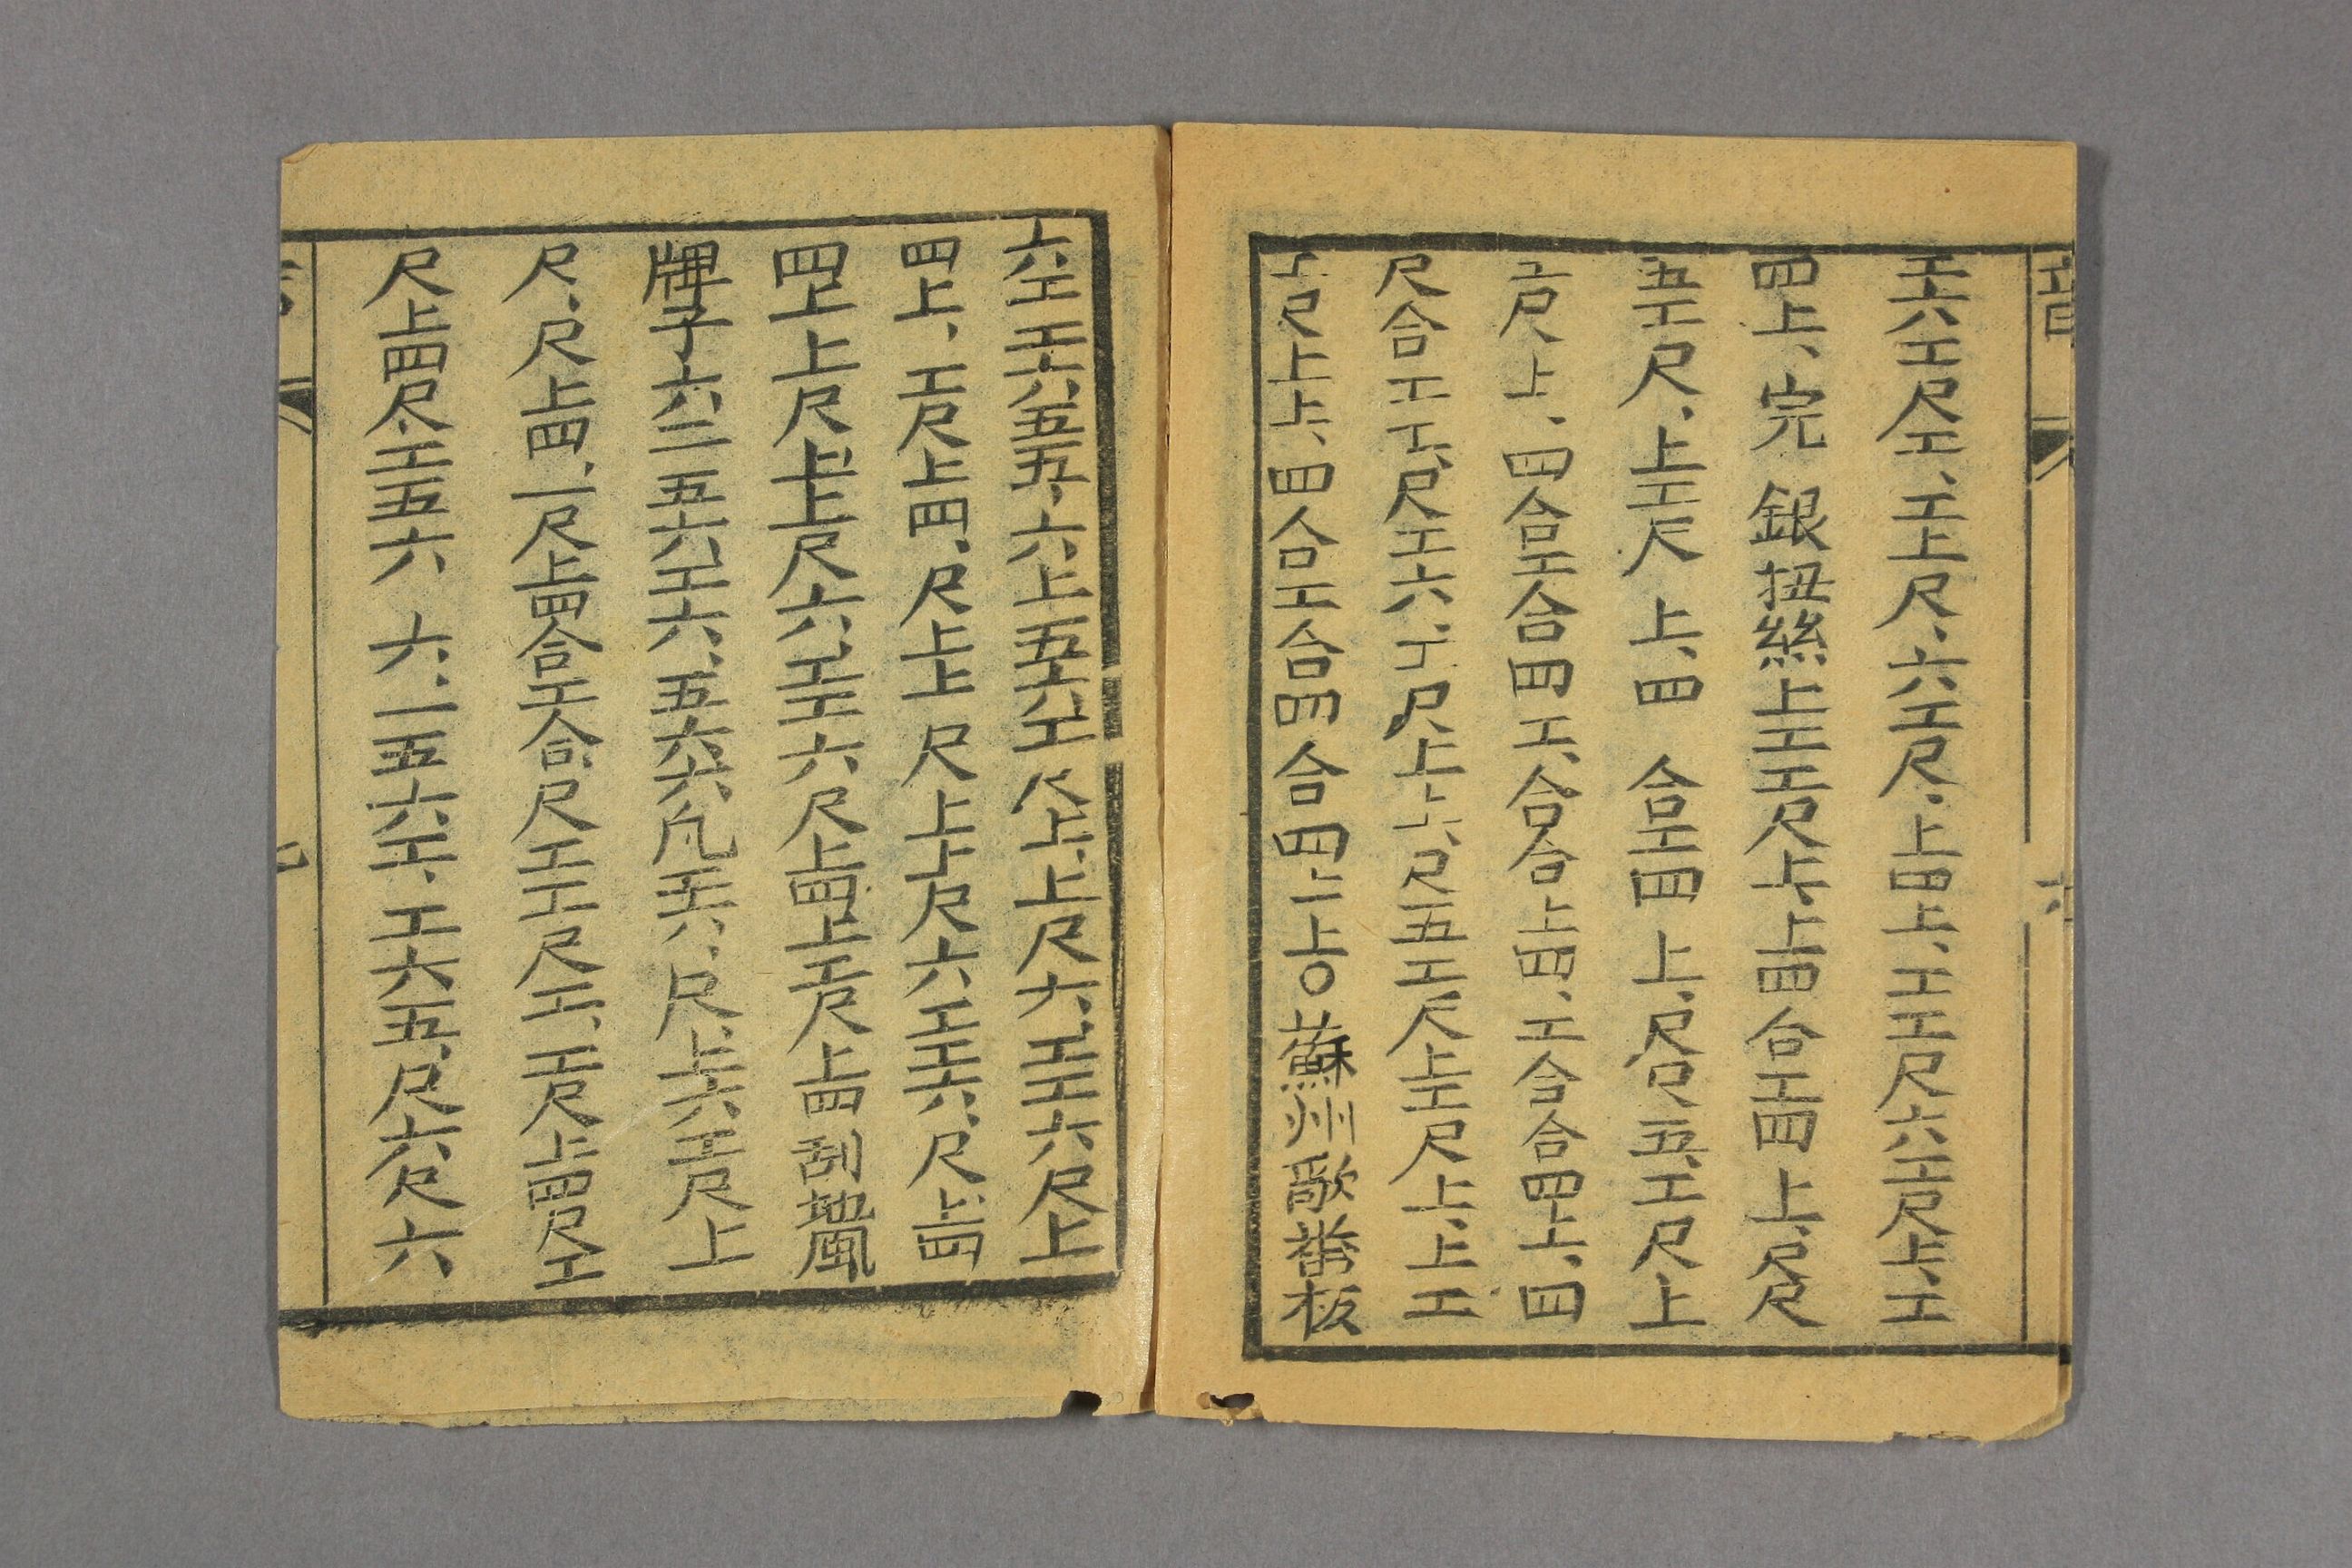 音
六
工六工尺工、工上尺、六工尺、上四上、工工尺六工尺上、工
四上、完 銀扭絲上工工尺上、上四合工四上、尺尺
五工尺、上工尺 上、四 合工四 上、尺尺五、工尺上
工尺上、四合工合四工、合合上四、工合合四上、四
尺合工工、尺工六、工尺上上、尺五工尺上工尺上、上工
上尺上上、四合工合四合四上上○蘇州歌畨板
六工工六五五、六上五六工尺上、上尺六、工工六尺上
四上、工尺上四、尺上上尺上上尺六工工六、尺上四
四上上尺上上尺六、工工六尺上四上工尺上四刮地風
牌子六三五六工六、五六六凡工六、尺、上六工尺上
尺、尺上四、一尺上四合工合尺工工尺工、工尺上四尺工
尺上四尺、工五六六、一五六工、工六五、尺六尺六